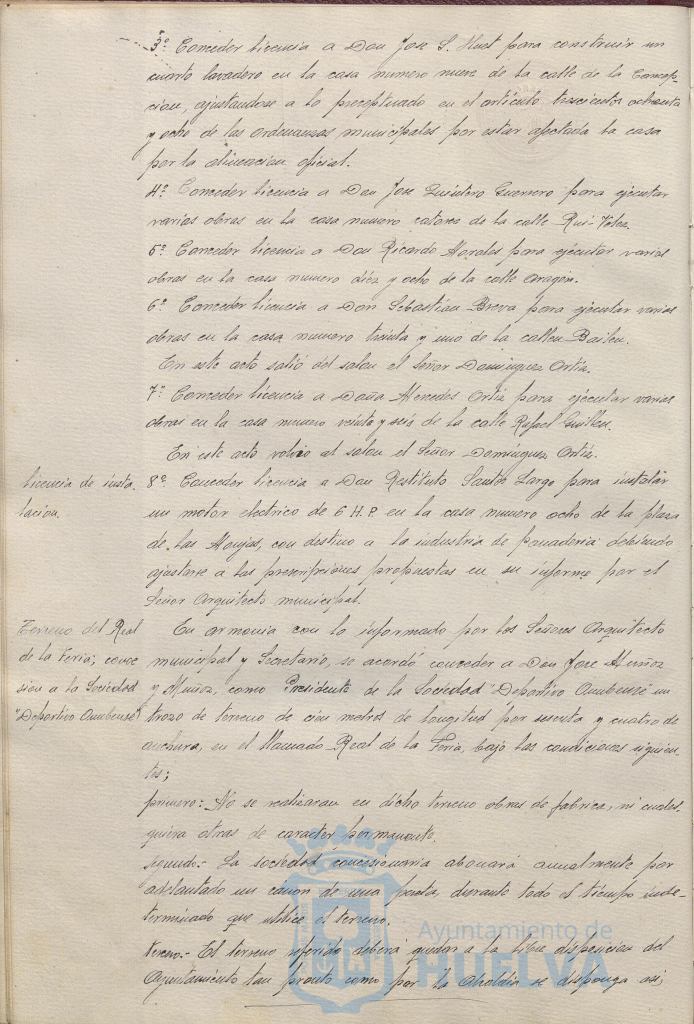 3º Conceder licencia a Don Jose S. Huet para construir un
cuarto lavadero en la casa numero nueve de la calle de la Concep-
cion, ajustandose a lo preceptuado en el articulo trescientos ochenta
y ocho de las ordenanzas municipales por estar afectada la casa
por la alineacion oficial.
4º Conceder licencia a Don Jose Quintero Guerrero para ejecutar
varias obras en la casa numero catorce de la calle Rui-Velez.
5º Conceder licencia a Don Ricardo Morales para ejecutar varias
obras en la casa numero diez y ocho de la calle Aragón.
6º Conceder licencia a Don Sebastian Breva para ejecutar varias
obras en la casa numero treinta y uno de la calle Bailen.
En este acto salió del salon el Señor Dominguez Ortiz.
7º Conceder licencia a Doña Mercedes Ortiz para ejecutar varias
obras en la casa numero veinte y seis de la calle Rafael Guillen.
En este acto volvio al salon el Señor Dominguez Ortiz.
licencia de insta-
lacion.
8º Conceder licencia a Don Restituto Santos Largo para instalar
un motor electrico de 6 H.P. en la casa numero ocho de la plaza
de las Monjas, con destino a la industria de panaderia debiendo
ajustarse a las prescripciones propuestas en su informe por el
Señor Arquitecto municipal.
Terreno del Real
de la Feria; conce
sion a la Sociedad
"Deportivo Onubense"
En armonia con lo informado por los Señores Arquitecto
municipal y Secretario, se acordó conceder a Don Jose Muñoz
y Muñoz, como Presidente de la Sociedad "Deportivo Onubense un
trozo de terreno de cien metros de longitud por sesenta y cuatro de
anchura, en el llamado Real de la Feria, bajo las condiciones siguien-
tes;
primero: No se realizaran en dicho terreno obras de fabrica, ni cuales-
quiera otras de caracter permanente.
segundo.- La sociedad concesionaria abonará anualmente por
adelantado un cánon de una peseta, durante todo el tiempo inde-
terminado que utilice el terreno.
tercero.- El terreno referido debera quedar a la libre disposicion del
Ayuntamiento tan pronto como por la Alcaldia se disponga asi;
Ayuntamiento de
HUELVA